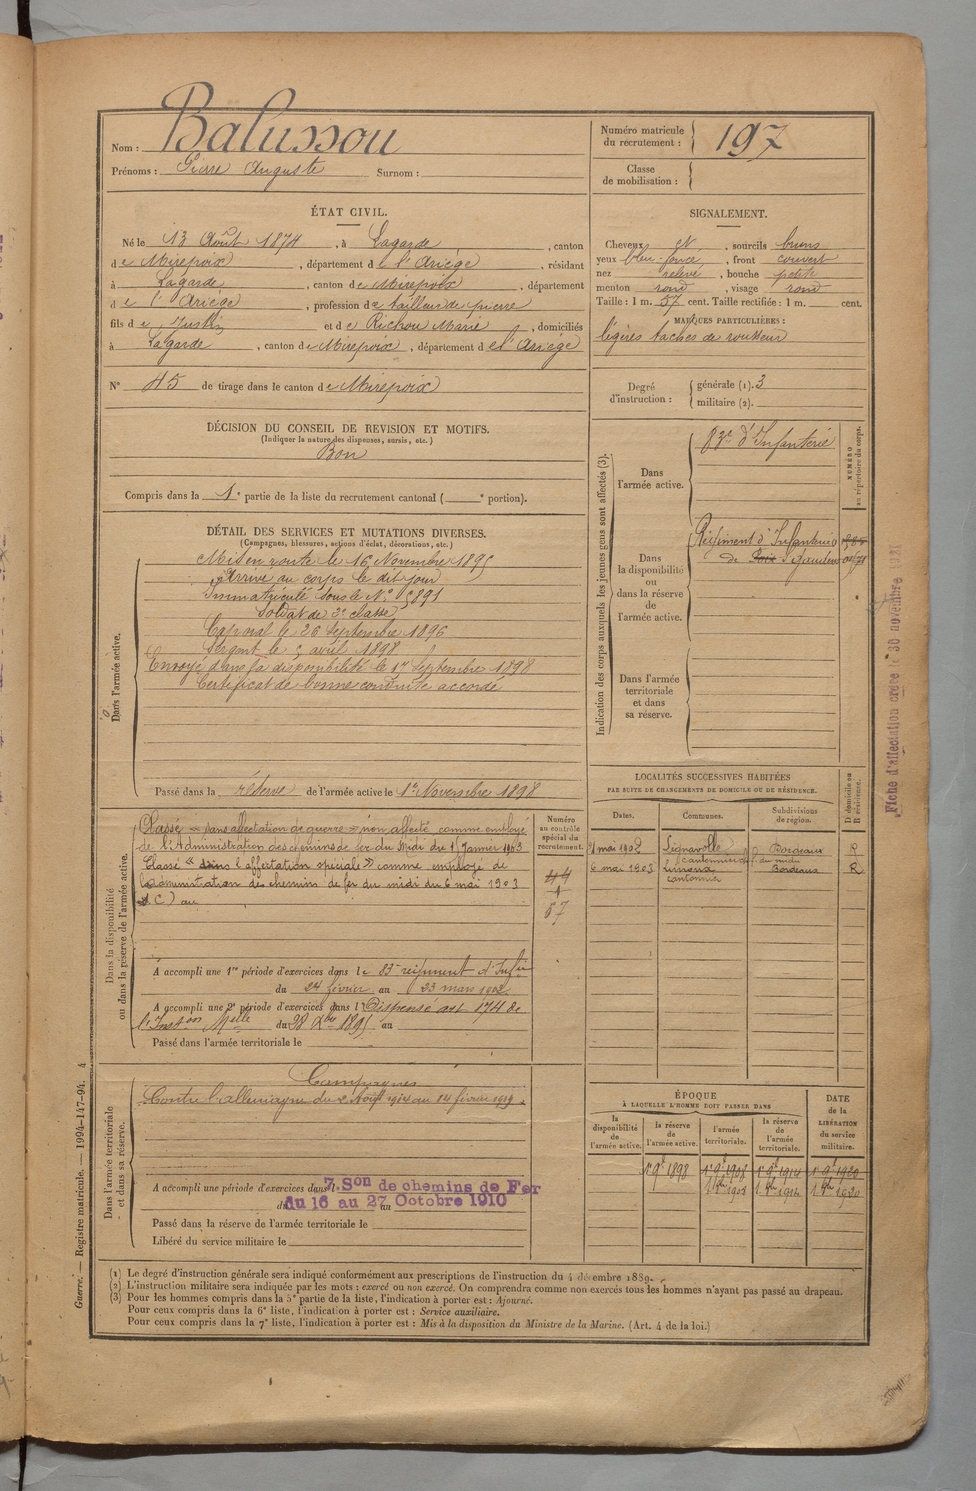 Nom : Balussou
Prénoms : Pierre Auguste Surnom :
Numéro matricule du recrutement : 197
Classe de mobilisation :
ÉTAT CIVIL.
Né le 13 Août 1874, à Lagarde, canton
de Mirepoix, département de l'Ariège, résidant
à Lagarde, canton de Mirepoix, département
de l'Ariège, profession de tailleur de pierre
fils de Justin et de Richou Marie, domiciliés
à Lagarde, canton de Mirepoix, département de l'Ariège
N° 45 de tirage dans le canton de Mirepoix
SIGNALEMENT.
Cheveux et, sourcils bruns
yeux bleu foncé, front couvert
nez relevé, bouche petite
menton rond, visage rond
Taille : 1 m. 57 cent. Taille rectifiée : 1 m. cent.
MARQUES PARTICULIÈRES :
légères taches de rousseur
Degré d'instruction : générale (1). 3
militaire (2).
DÉCISION DU CONSEIL DE REVISION ET MOTIFS.
(Indiquer la nature des dispenses, sursis, etc.)
Bon
Compris dans la 1e partie de la liste du recrutement cantonal ( e portion).
DÉTAIL DES SERVICES ET MUTATIONS DIVERSES.
(Campagnes, blessures, actions d'éclat, décorations, etc.)
Dans l'armée active.
Mis en route le 16 Novembre 1895
Arrivé au corps le dit jour
Immatriculé sous le N° 5891
Soldat de 2e classe
Caporal le 26 Septembre 1896
Sergent le avril 1898
Envoyé dans la disponibilité le 1er Septembre 1898
Certificat de bonne conduite accordé
Passé dans la réserve de l'armée active le 1er Novembre 1898
Indication des corps auxquels les jeunes gens sont affectés (3).
NUMÉRO au répertoire du corps.
Dans l'armée active.
83e d'Infanterie
Dans la disponibilité ou dans la réserve de l'armée active.
Régiment d'Infanterie
de Foix St Gaudens
Dans l'armée territoriale et dans sa réserve.
Fiche d'affectation créée le 30 novembre 1921
Dans la disponibilité ou dans la réserve de l'armée active.
Classé « sans affectation de guerre » non affecté comme employé
de l'Administration des chemins de fer du Midi du 15 Janvier 1903
Classé « dans l'affectation spéciale » comme employé de
l'administration des chemins de fer du midi du 6 mai 1903
C) au
Numéro au contrôle spécial du recrutement.
67
A accompli une 1re période d'exercices dans le 83e régiment d'Infie
du 24 février au 23 mars 1902
A accompli une 2e période d'exercices dans l Dispensé art 174 de
l'Inston Melle du 28 Xbre 1895 au
Passé dans l'armée territoriale le
LOCALITÉS SUCCESSIVES HABITÉES
PAR SUITE DE CHANGEMENTS DE DOMICILE OU DE RÉSIDENCE.
Dates. Communes. Subdivisions de région. D domicile ou R résidence.
mai 1902 Bordeaux R
cantonnier du midi
6 mai 1903 Limoux Bordeaux R
cantonnier
Dans l'armée territoriale et dans sa réserve.
Campagnes
Contre l'allemagne du 2 Août 1914 au 14 février 1919.
A accompli une période d'exercices dans l 7. Son de chemins de Fer
du 16 au 27 Octobre 1910
Passé dans la réserve de l'armée territoriale le
Libéré du service militaire le
ÉPOQUE
À LAQUELLE L'HOMME DOIT PASSER DANS
DATE de la LIBÉRATION du service militaire.
la disponibilité de l'armée active. la réserve de l'armée active. l'armée territoriale. la réserve de l'armée territoriale.
1er 9bre 1898 1er 9bre 1908 1er 9bre 1914 1er 9bre 1920
1908 1914 1920
(1) Le degré d'instruction générale sera indiqué conformément aux prescriptions de l'instruction du 4 décembre 1889.
(2) L'instruction militaire sera indiquée par les mots : exercé ou non exercé. On comprendra comme non exercés tous les hommes n'ayant pas passé au drapeau.
(3) Pour les hommes compris dans la 5e partie de la liste, l'indication à porter est : Ajourné.
Pour ceux compris dans la 6e liste, l'indication à porter est : Service auxiliaire.
Pour ceux compris dans la 7e liste, l'indication à porter est : Mis à la disposition du Ministre de la Marine. (Art. 4 de la loi.)
Guerre. — Registre matricule. — 1994-147-94. 4